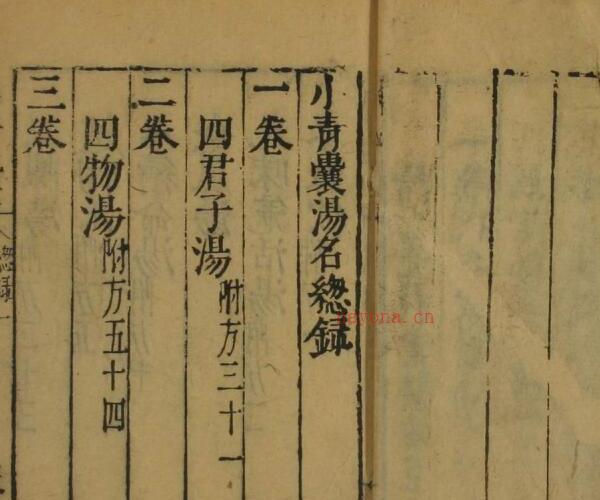 小青囊湯名緫録
一卷
四君子湯附方三十一
二卷
四物湯附方五十四
三卷
緫録一
nayona.cn